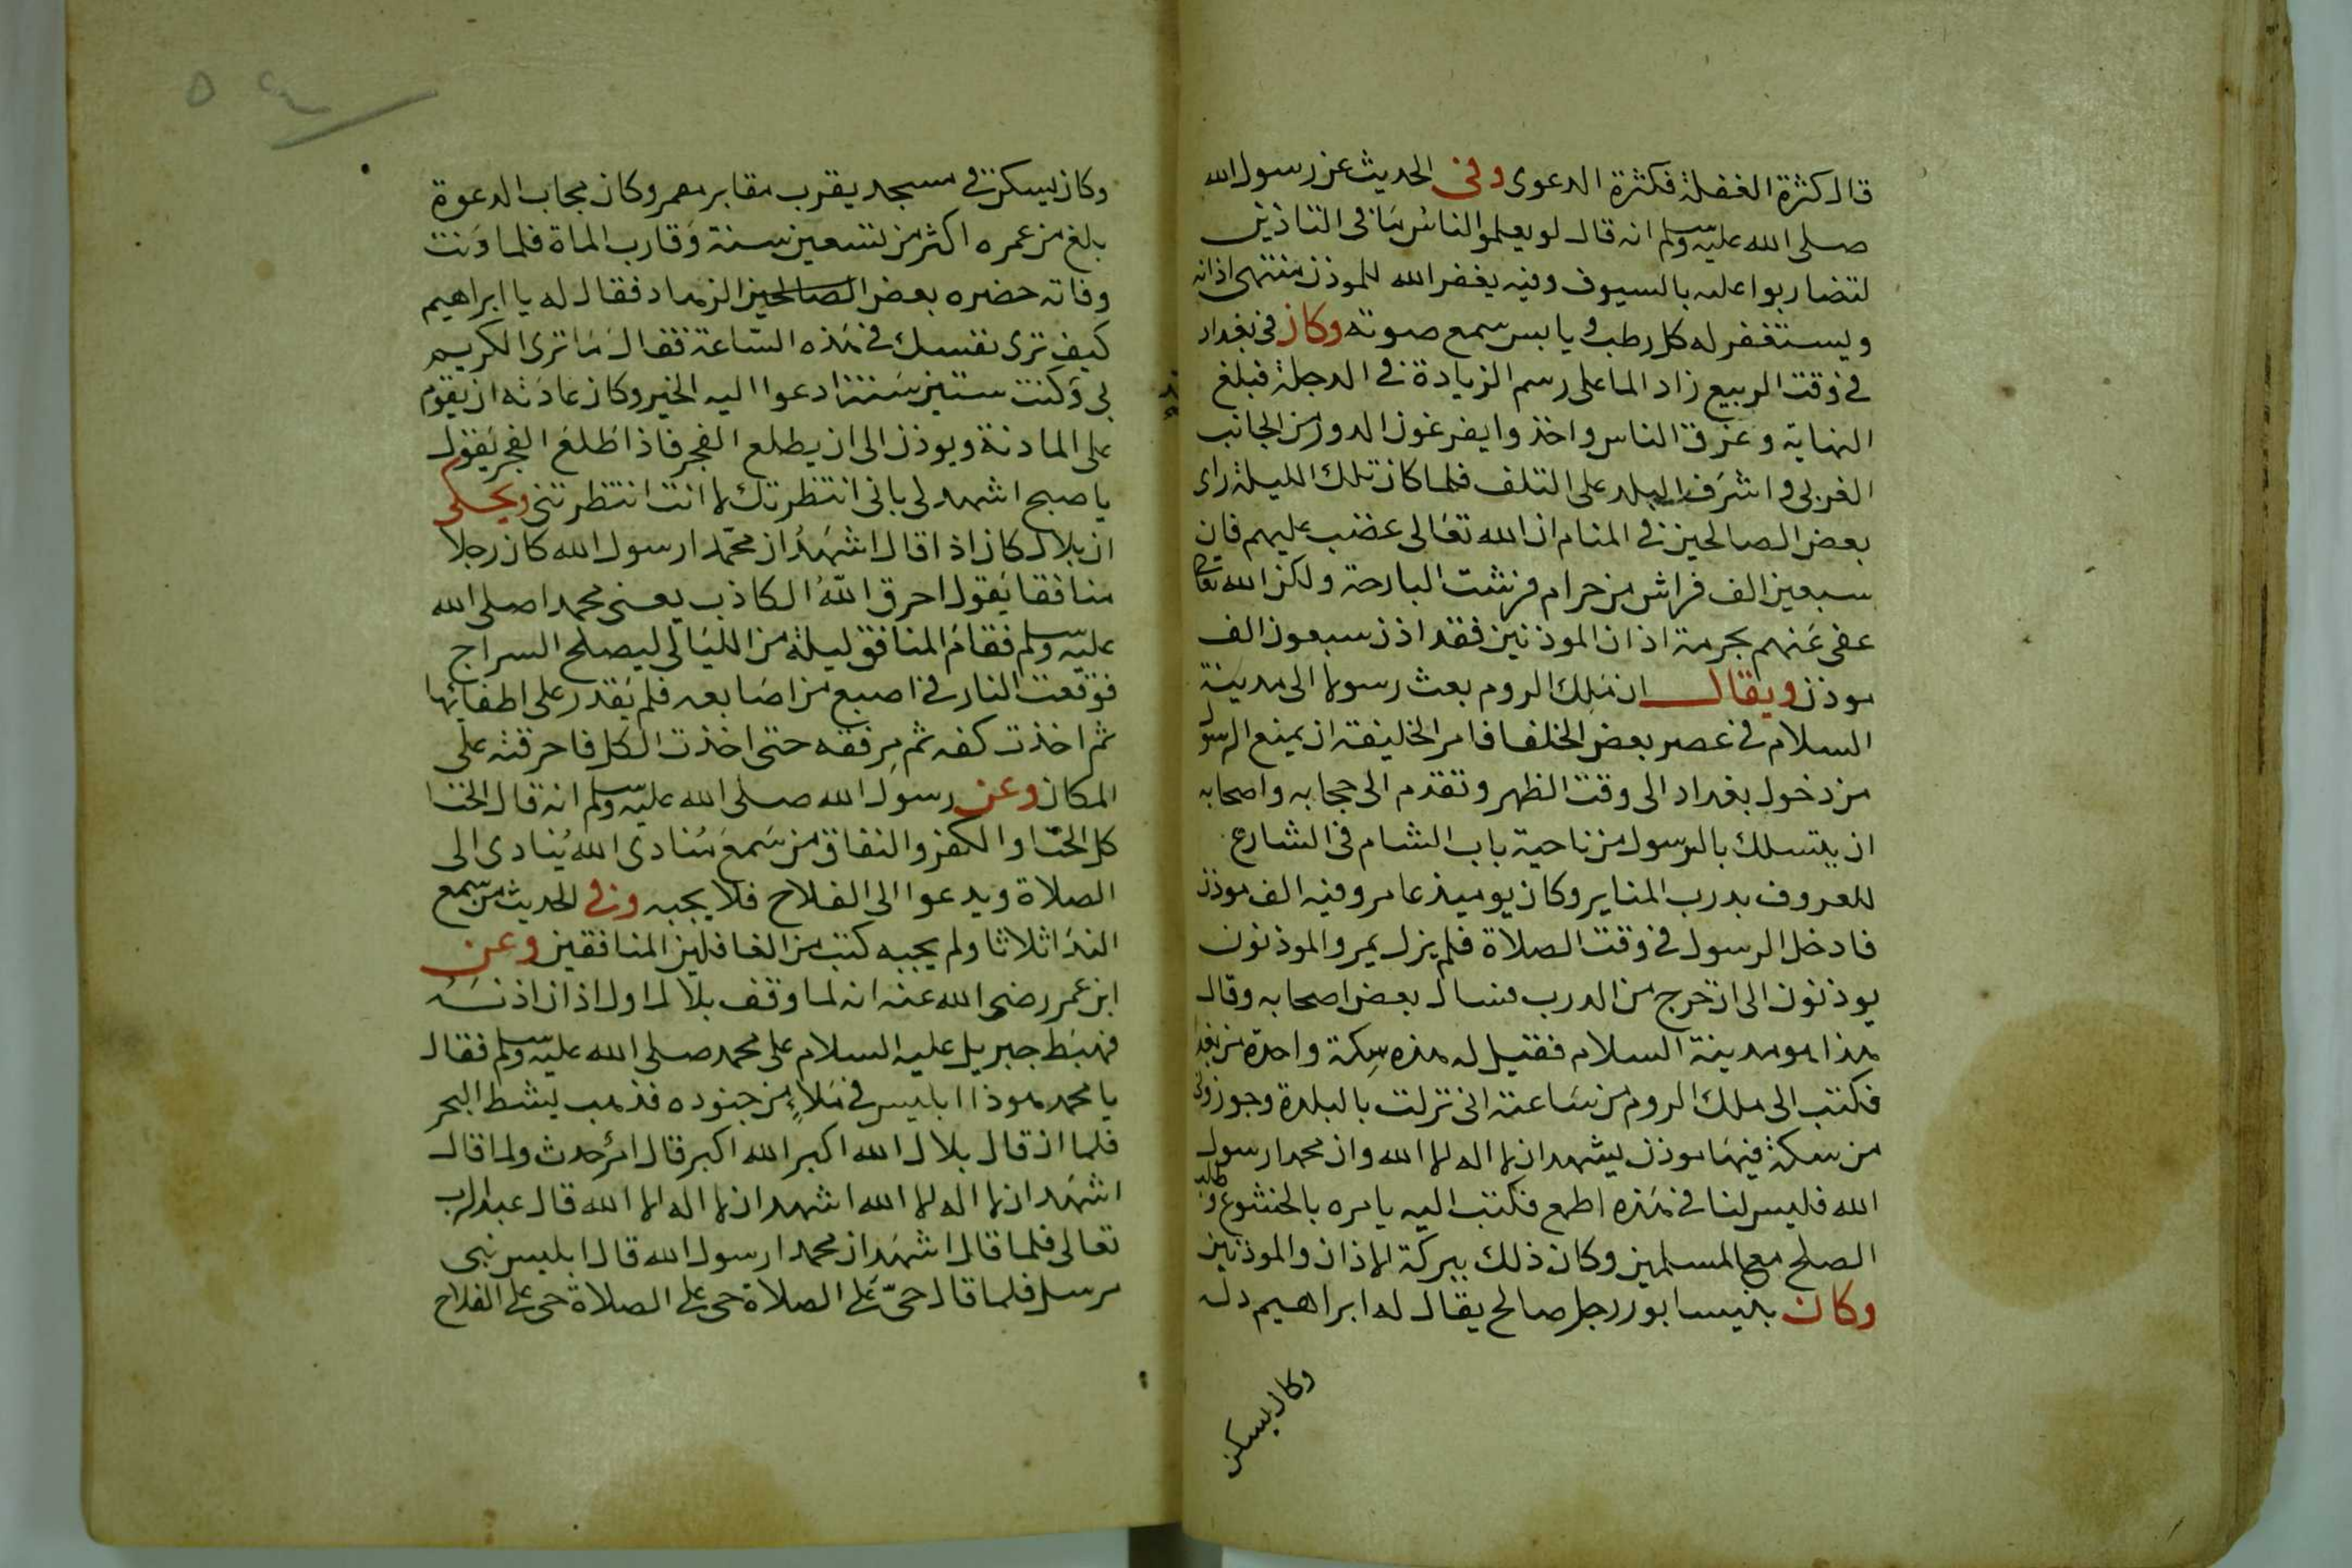 قال كثرة الغفلة فكثرة الدعوى وفى الحديث عن رسول الله
صلى الله عليه وسلم انه قال لو يعلموا الناس ما فى التاذين
لتضاربوا عليه بالسيوف وفيه يغفر الله للموذن منتهى اذانه
ويستغفر له كل رطب و يابس سمع صوته وكان فى بغداد
فى وقت الربيع زاد الما على رسم الزيادة فى الدجلة فبلغ
النهاية وغرق الناس واخذوا يفرغون الدور من الجانب
الغربى واشرف البلد على التلف فلما كان تلك الليلة راى
بعض الصالحين فى المنام ان الله تعالى غضب عليهم فان
سبعين الف فراش من حرام فرشت البارحة ولكن الله تعالى
عفى عنهم بحرمة اذان الموذنين فقد اذن سبعون الف
موذن ويقال ان ملك الروم بعث رسولا الى مدينة
السلام فى عصر بعض الخلفا فامر الخليفة ان يمنع الرسول
من دخول بغداد الى وقت الظهر وتقدم الى حجابه واصحابه
ان يتسلك بالرسول من ناحية باب الشام فى الشارع
المعروف بدرب المناير وكان يوميذ عامر وفيه الف موذن
فادخل الرسول فى وقت الصلاة فلم يزل يمر والموذنون
يوذنون الى ان خرج من الدرب فسال بعض اصحابه وقال
هذا هو مدينة السلام فقيل له هذه سكة واحدة من بغداد
فكتب الى ملك الروم من ساعته انى نزلت بالبلدة وجوزونى
من سكة فيها موذن يشهد ان لا اله الا الله وان محمدا رسول
الله فليس لنا فى هذه اطمع فكتب اليه يامره بالخشوع وطلب
الصلح مع المسلمين وكان ذلك ببركة الاذان والموذنين
وكان بنيسابور رجل صالح يقال له ابراهيم دله
وكان يسكن
وكان يسكن فى مسجد يقرب مقابر معمر وكان مجاب الدعوة
بلغ من عمره اكثر من تسعين سنة وقارب الماة فلما دنت
وفاته حضره بعض الصالحين الزهاد فقال له يا ابراهيم
كيف ترى نفسك فى هذه الساعة فقال ما ترى الكريم
بى وكنت ستين سنة ادعوا اليه الخير وكان عادته ان يقوم
على المادنة ويوذن الى ان يطلع الفجر فاذا طلع الفجر يقول
يا صبح اشهد لى بانى انتظرتك لا انت انتظرتنى ويحكى
ان بلال كان اذا قال اشهد ان محمدا رسول الله كان رجلا
منافقا يقول احرق الله الكاذب يعنى محمدا صلى الله
عليه وسلم فقام المنافق ليلة من الليالى ليصلح السراج
فوقعت النار فى اصبع من اصابعه فلم يقدر على اطفائها
ثم اخذت كفه ثم مرفقه حتى اخذت الكل فاحرقته على
المكان وعن رسول الله صلى الله عليه وسلم انه قال الخنا
كل الخنا والكفر والنفاق من سمع منادى الله ينادى الى
الصلاة ويدعوا الى الفلاح فلا يجبه وفى الحديث من سمع
الندا ثلاثا ولم يجبه كتب من الغافلين المنافقين وعن
ابن عمر رضى الله عنه انه لما وقف بلال لاول اذان اذنه
فهبط جبريل عليه السلام على محمد صلى الله عليه وسلم فقال
يا محمد هوذا ابليس فى ملاء من جنوده فذهب ليشط البحر
فلما ان قال بلال الله اكبر الله اكبر قال امر حدث ولما قال
اشهد ان لا اله الا الله اشهد ان لا اله الا الله قال عبد الرب
تعالى فلما قال اشهد ان محمدا رسول الله قال ابليس نبى
مرسل فلما قال حى على الصلاة حى على الصلاة حى على الفلاح